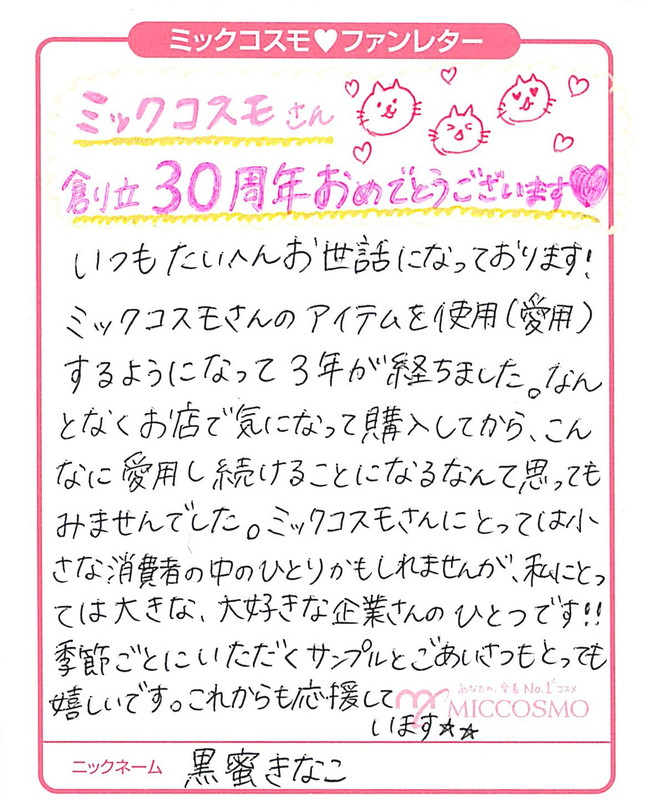 ミックコスモ♥ファンレター
ミックコスモさん
創り立30周年おめでとうございます♥
いつもたいへんお世話になっております!
ミックコスモさんのアイテムを使用(愛用)
するようになって3年が経ちました。なん
となくお店で気になって購入してから、こん
なに愛用し続けることになるなんて思っても
みませんでした。ミックコスモさんにとっては小
さな消費者の中のひとりかもしれませんが、私にとっ
ては大きな、大好きな企業さんのひとつです!!
季節ごとにいただくサンプルとごあいさつもとっても
嬉しいです。これからも応援して
います☆☆
あなたの、愛着No.1コスメ
MICCOSMO
ニックネーム 黒蜜きなこ